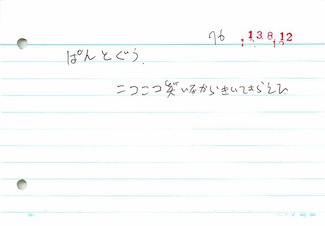 76 '13.8.12
ぱんとぐう。
ニコニコ笑いながらきいてさらえび